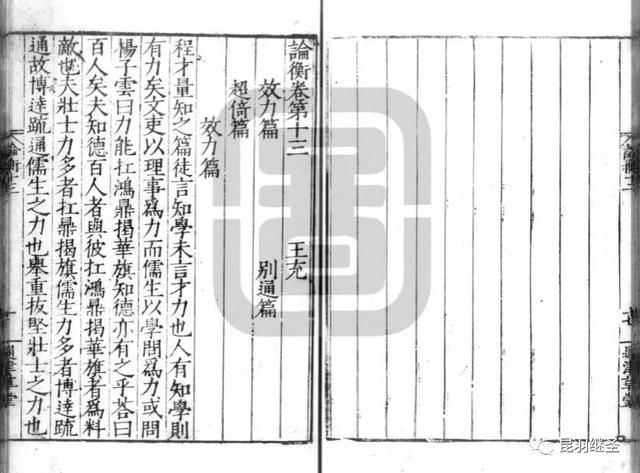 論衡卷第十三
王充
效力篇
別通篇
超倚篇
效力篇
程才量知之篇徒言知學未言才力也人有知學則
有力矣文吏以理事爲力而儒生以學問爲力或問
楊子雲曰力能扛鴻鼎揭華旗知德亦有之乎荅曰
百人矣夫知德百人者與彼扛鴻鼎揭華旗者爲料
敵也夫壯士力多者扛鼎揭旗儒生力多者博達疏
通故博達疏通儒生之力也舉重拔堅壯士之力也
昆羽继圣